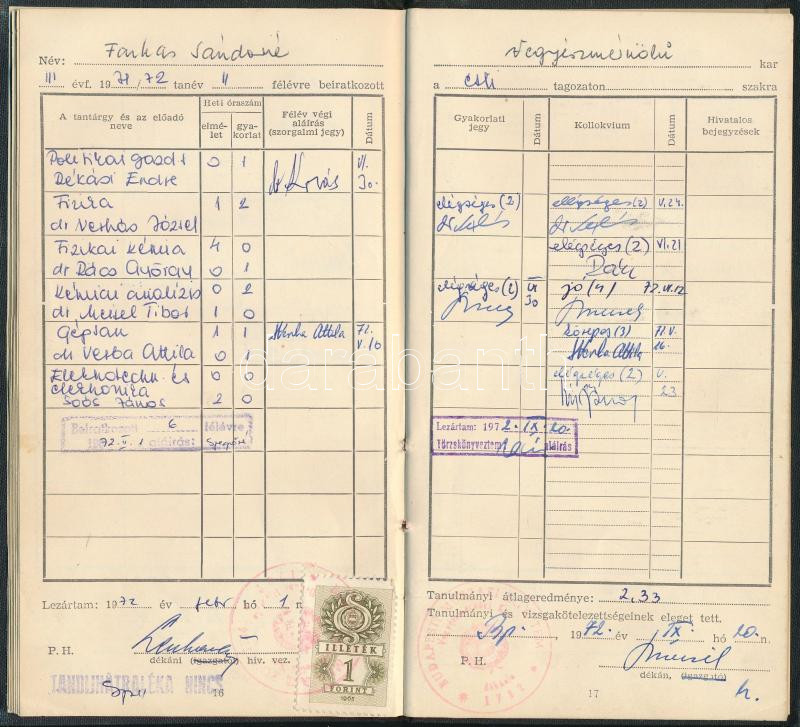 Név: Farkas Sándorné
III évf. 1971/72 tanév II félévre beiratkozott
A tantárgy és az előadó neve
Heti óraszám
elmélet
gyakorlat
Félév végi aláírás (szorgalmi jegy)
Dátum
Politikai gazd. 0 1 VI.
Békási Endre dr Kovás 30.
Fizika 1 2
dr Verhás József
Fizikai kémia 4 0
dr Rácz György 0 1
Kémiai analízis 0 2
dr Meisel Tibor 1 0
Géptan 1 1 Verba Attila 72.
dr Verba Attila 0 1 V. 16
Elektrotechn. és 0 0
elektronika
Soós János 2 0
Beiratkozott 6 félévre
1972. II. 1 aláírás:
Lezártam: 1972 év febr hó 1 n
P. H.
dékáni (igazgató) hiv. vez.
TANDIJHÁTRALÉKA NINCS
16
ILLETÉK
1
FORINT
1965
Vegyészmérnöki kar
a esti tagozaton szakra
Gyakorlati jegy
Dátum
Kollokvium
Dátum
Hivatalos bejegyzések
elégséges (2) elégséges (2) V. 24.
elégséges (2) VI. 21
elégséges (2) IX jó (4) 72. VI. 12
30
közepes (3) 71. V.
Verba Attila 16.
elégséges (2) V.
23
Lezártam: 1972. IX. 20.
Törzskönyveztem aláírás
Tanulmányi átlageredménye: 2,33
Tanulmányi és vizsgakötelezettségeinek eleget tett.
Bp., 1972 év IX hó 20. n.
P. H.
dékán, (igazgató)
17
darabanth